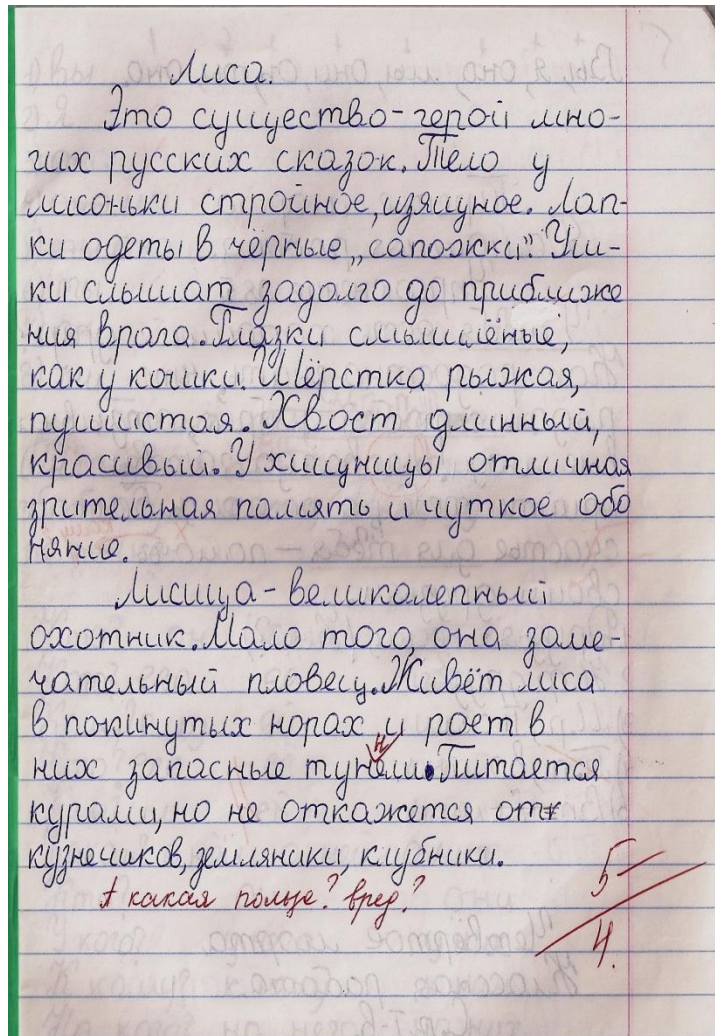 Лиса.
Это существо - герой мно-
гих русских сказок. Тело у
лисоньки стройное, изящное. Лап-
ки одеты в чёрные „сапожки". Уш-
ки слышат задолго до приближе
ния врага. Глазки смышлёные,
как у кошки. Шёрстка рыжая,
пушистая. Хвост длинный,
красивый. У хищницы отличная
зрительная память и чуткое обо
няние.
Лисица - великолепный
охотник. Мало того, она заме-
чательный пловец. Живёт лиса
в покинутых норах и роет в
н
них запасные тунели. Питается
курами, но не откажется от
кузнечиков, земляники, клубники.
А какая польза? вред?
5-
4.